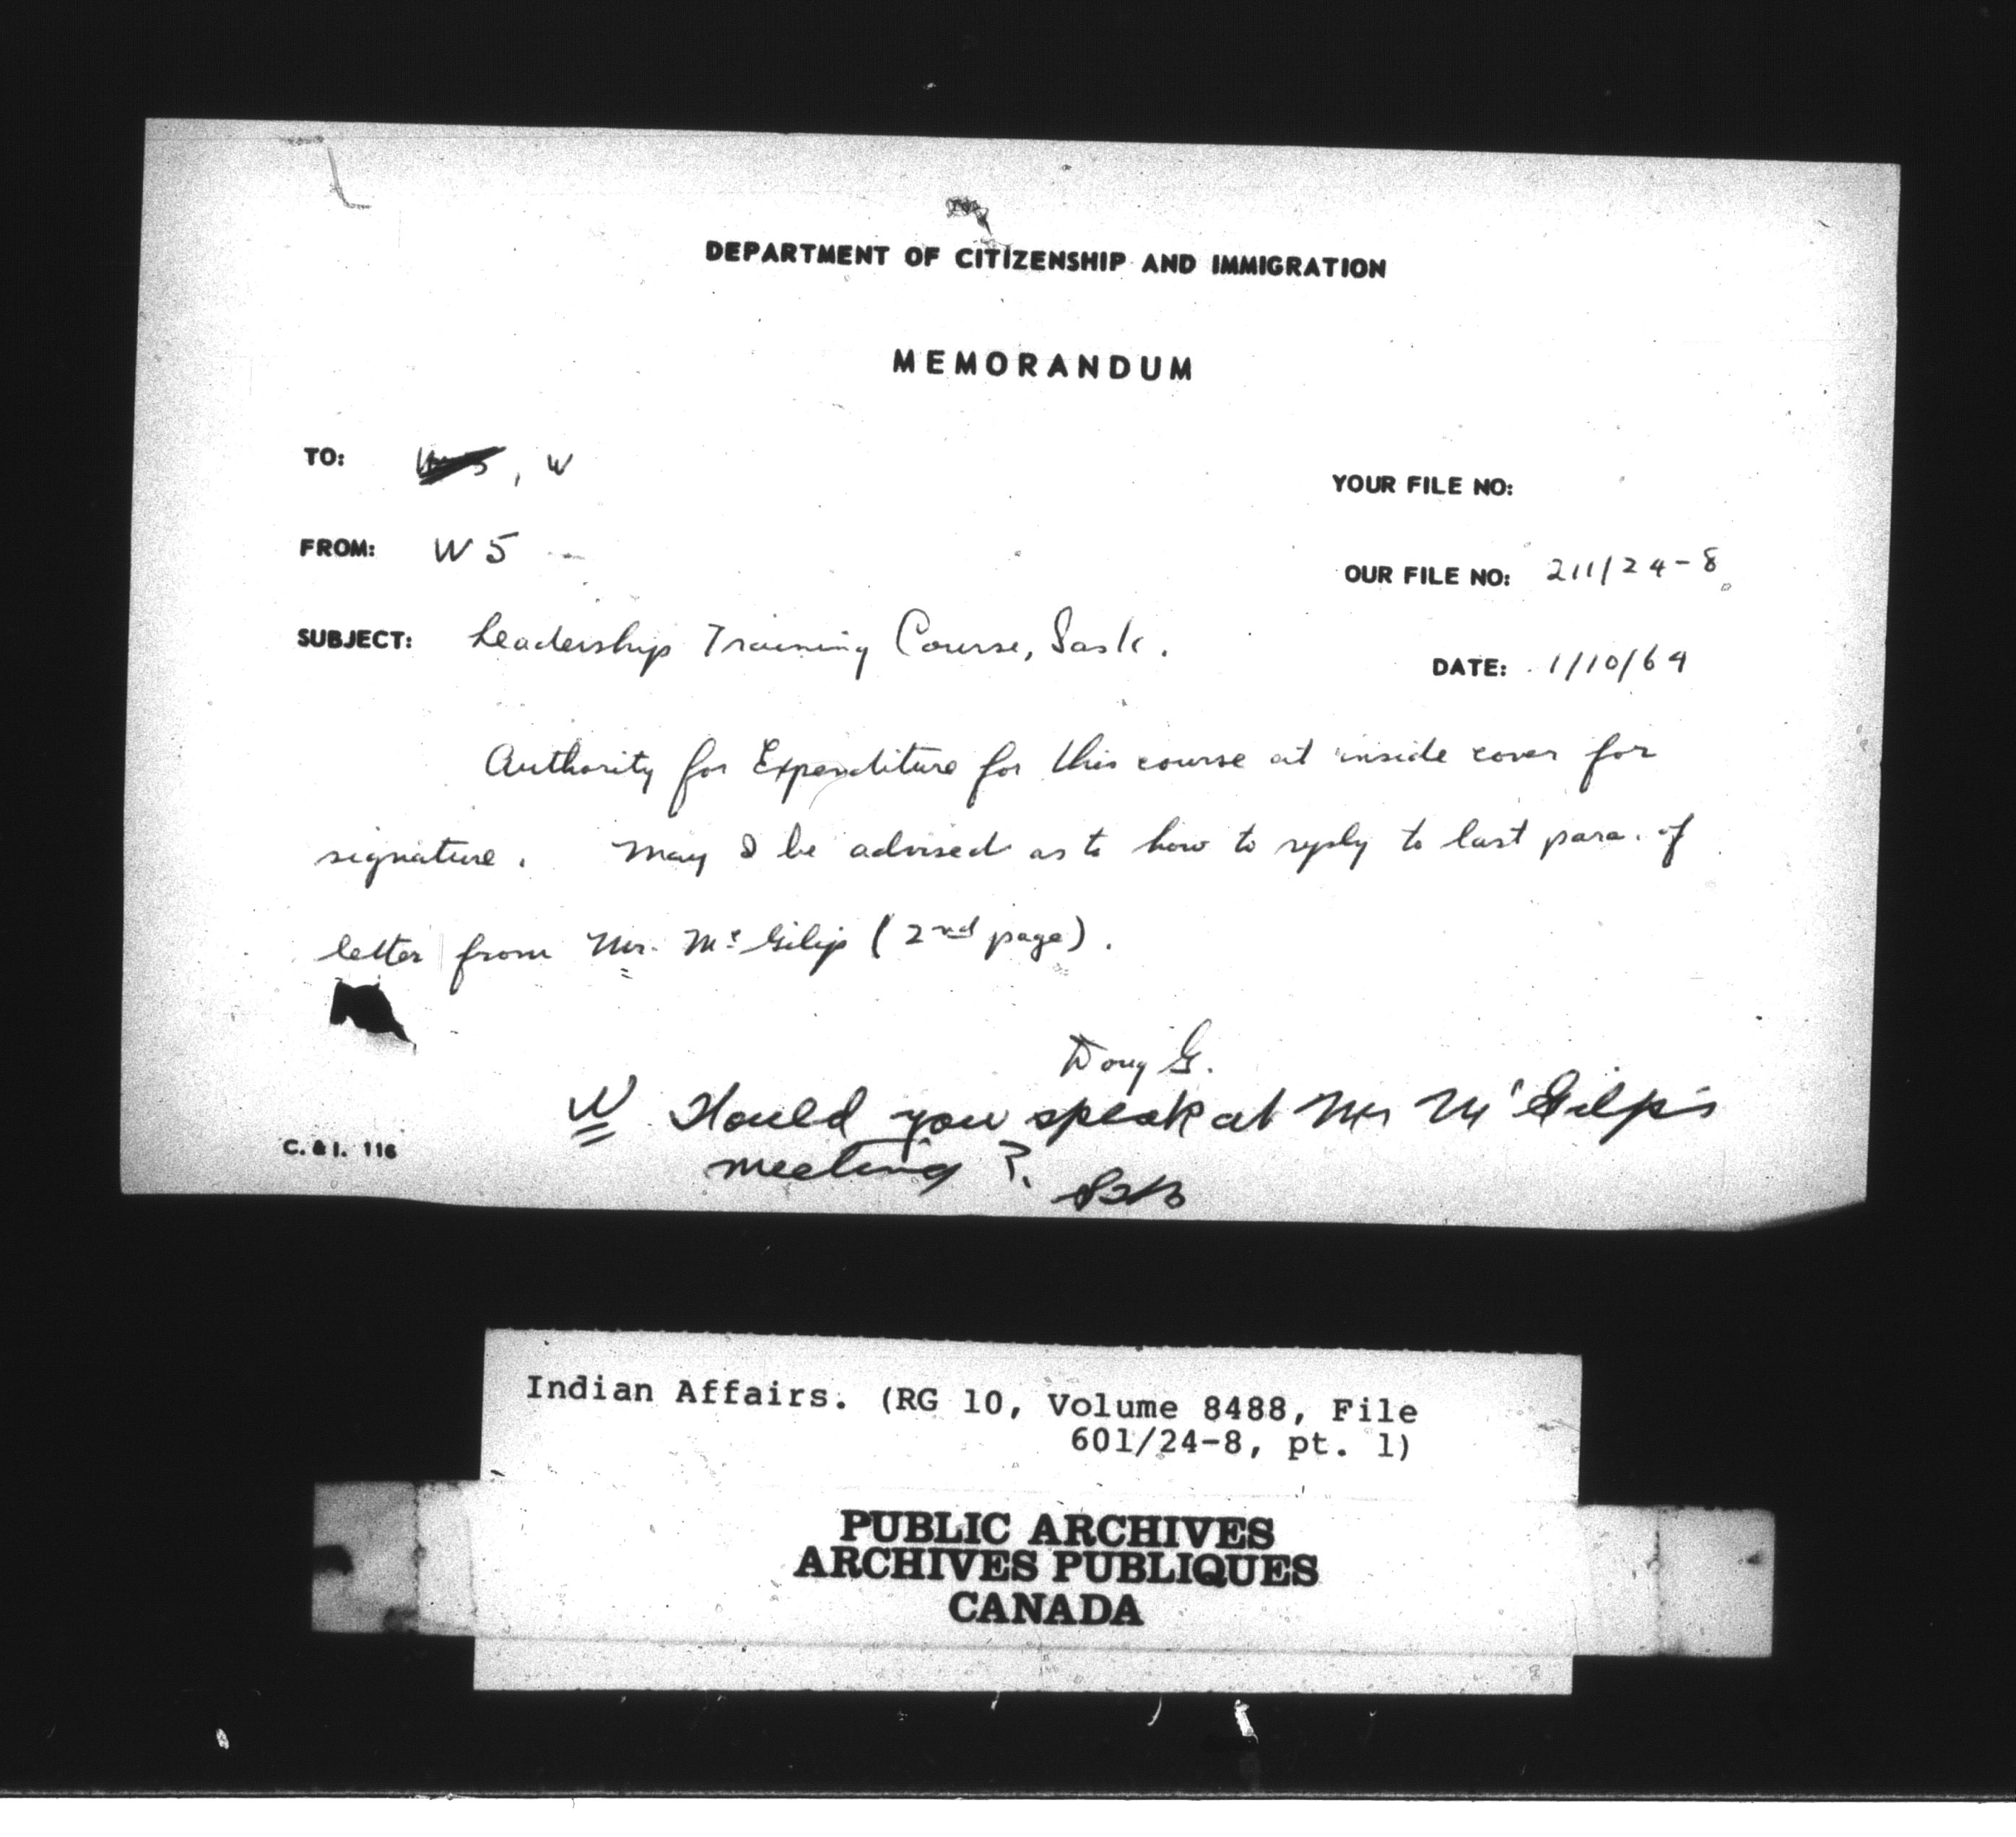 DEPARTMENT OF CITIZENSHIP AND IMMIGRATION
MEMORANDUM
TO: , W
YOUR FILE NO:
FROM: W5
OUR FILE NO: 211/24-8
SUBJECT: Leadership Training Course, Sask.
DATE: 1/10/64
Authority for Expenditure for this course at inside cover for
signature. May I be advised as to how to reply to last para. of
letter from Mr. McGilip (2nd page).
Doug G.
W Would you speak at Mr McGilp's
meeting?
C. & I. 116
Indian Affairs. (RG 10, Volume 8488, File
601/24-8, pt. 1)
PUBLIC ARCHIVES
ARCHIVES PUBLIQUES
CANADA